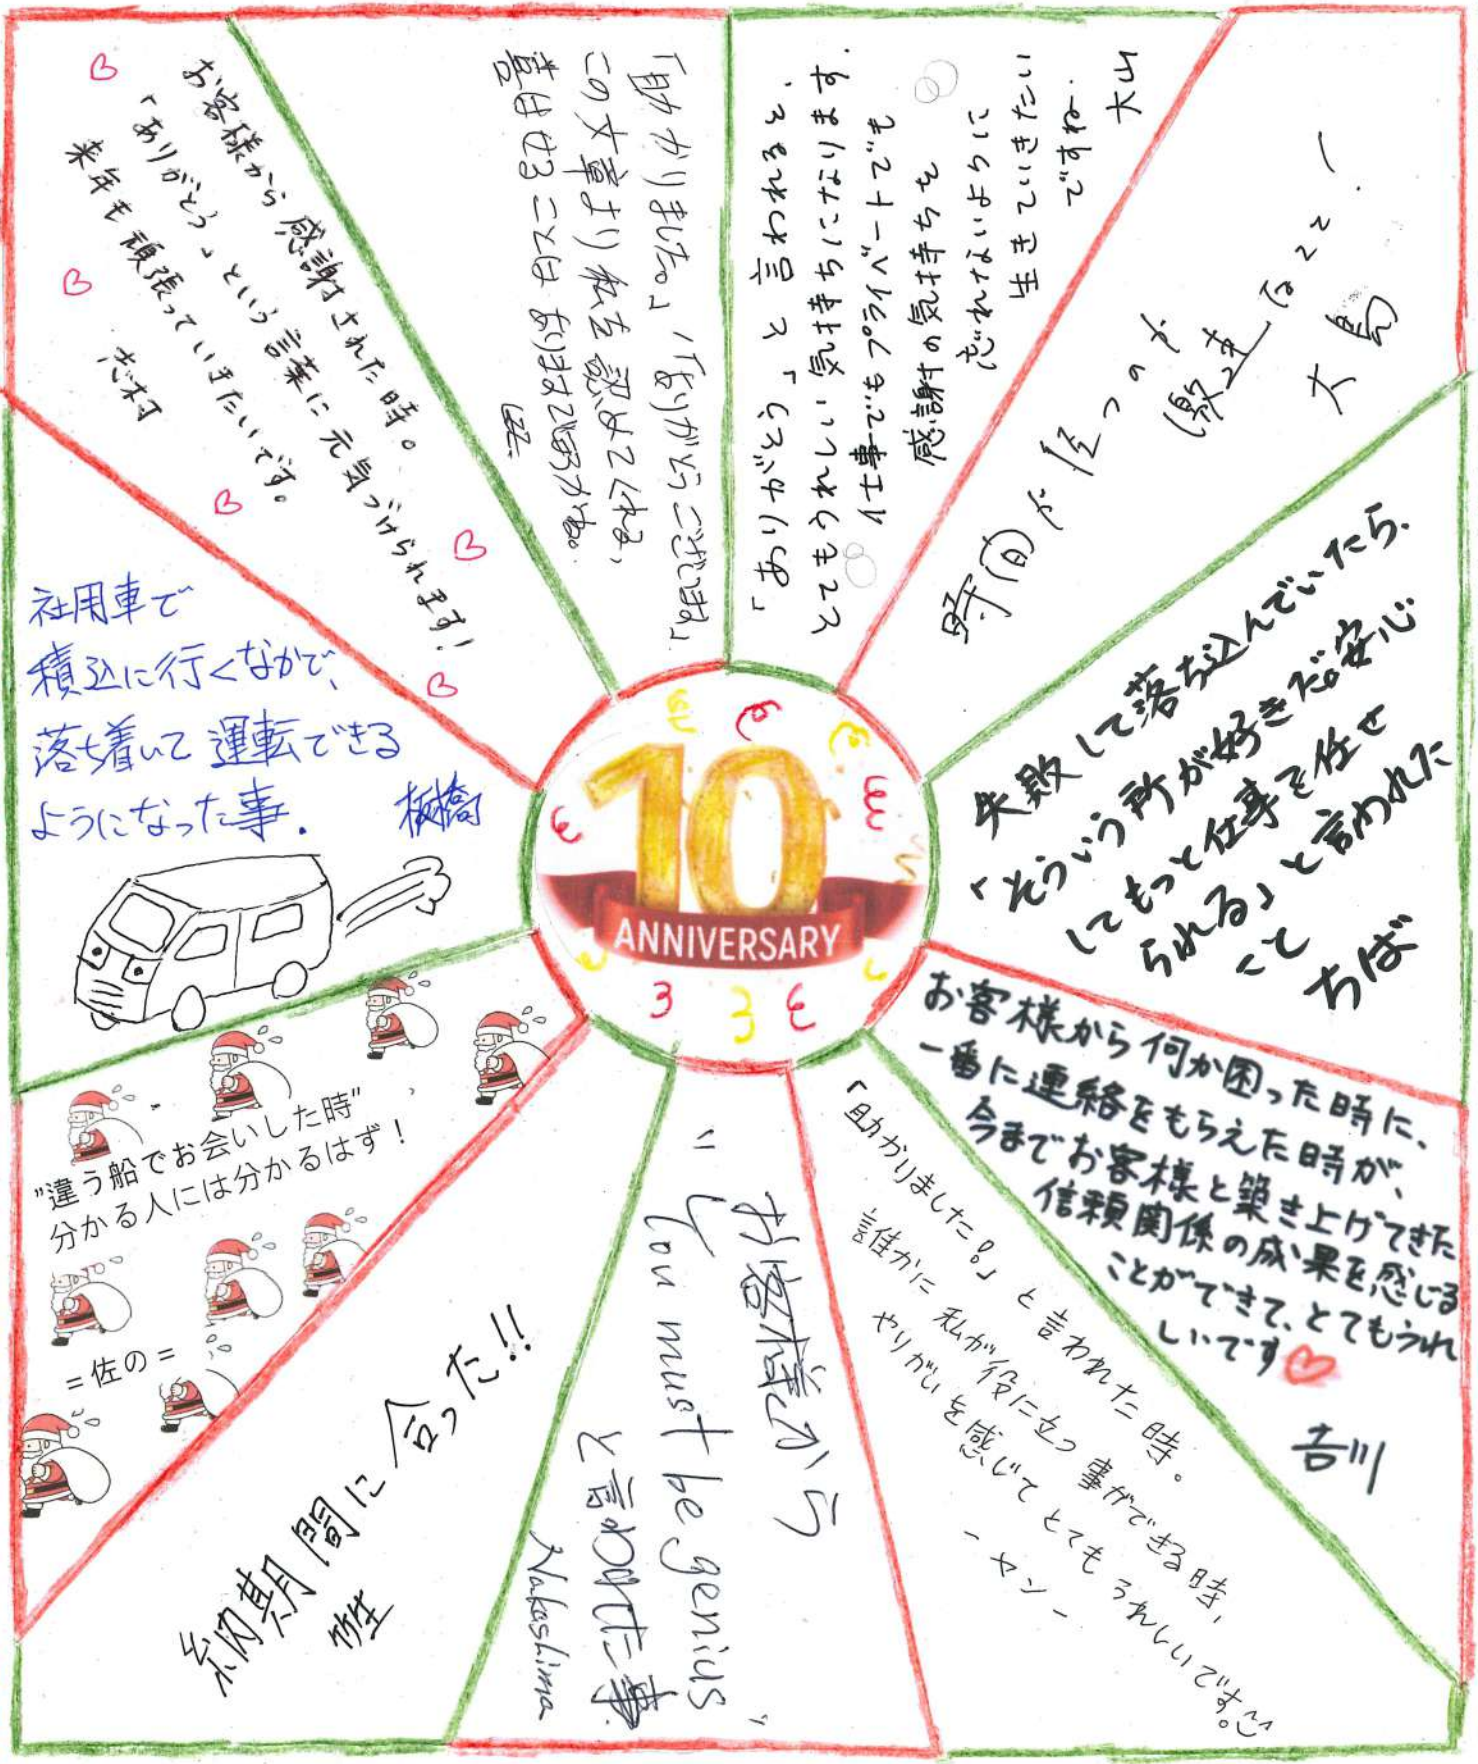 お客様から感謝された時。
「ありがとう」という言葉に元気づけられます!
来年も頑張っていきたいです。
志村
「助かりました。」「ありがとうございます」
この文章より私を認めてくれる、
言はせることはありますであろうかね。
「ありがとう」と言われると、
とてもうれしい気持ちになります。
仕事でもプライベートでも
感謝の気持ちを
忘れないように
生きていきたい
ですね。
大山
時間が経つのが
激速（行ココ!
大島
失敗して落ち込んでいたら、
「そういう所が好きだ。安心
してもっと仕事を任せ
られる」と言われた
こと
ちば
お客様から何か困った時に、
一番に連絡をもらえた時が、
今までお客様と築き上げてきた
信頼関係の成果を感じる
ことができて、とてもうれ
しいです
吉川
「助かりました!」と言われた時。
誰かに私が役に立つ事ができる時、
やりがいを感じてとてもうれしいです。
-ヤン-
お客様から
"You must be genius"
と言われた事
Nakashima
納期間に合った!!
"違う船でお会いした時"
分かる人には分かるはず！
=佐の=
社用車で
積込に行くなかで、
落ち着いて運転できる
ようになった事.
板橋
10
ANNIVERSARY